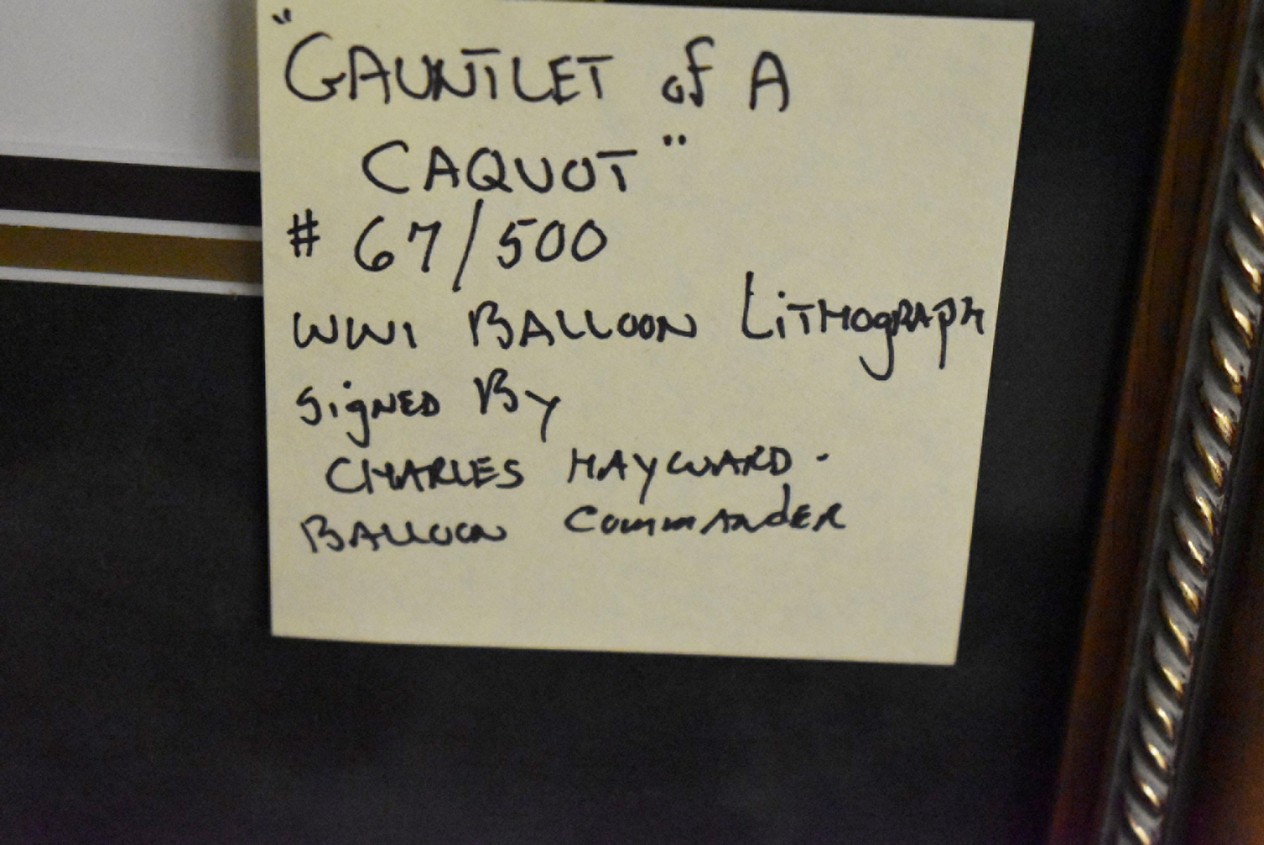 "GAUNTLET of A
CAQUOT"
# 67/500
WWI BALLOON LiTHOgRAPH
SigNED By
CHARLES HAYWARD -
BALLOON COMMANdER